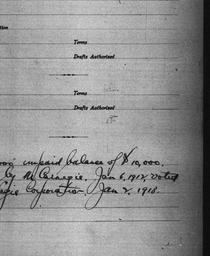 tion
Terms
Drafts Authorized
Terms
Drafts Authorized
unpaid balance of $10,000.
by Mr Carnegie, Jan 6, 1912, voted
egie Corporation Jan 2, 1918.